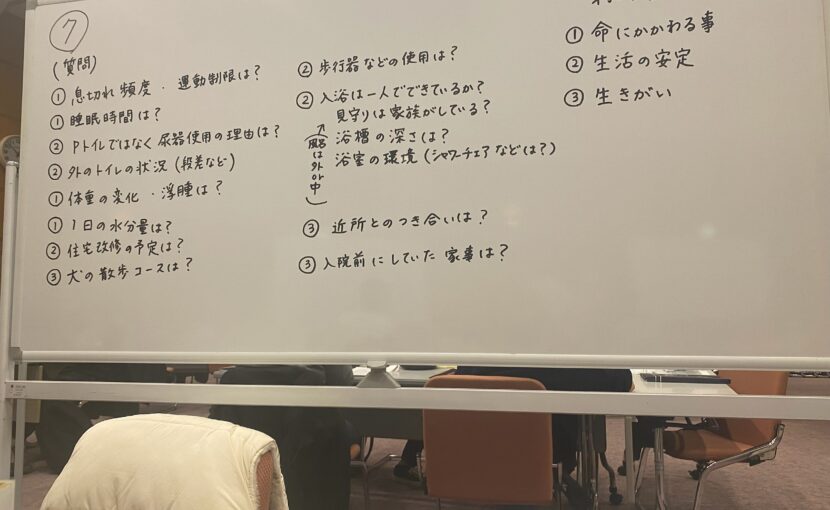 ⑦
(質問)
① 息切れ頻度・運動制限は?
① 睡眠時間は?
② Pトイレではなく尿器使用の理由は?
② 外のトイレの状況(段差など)
① 体重の変化・浮腫は?
① 1日の水分量は?
② 住宅改修の予定は?
③ 犬の散歩コースは?
② 歩行器などの使用は?
② 入浴は一人でできているか?
見守りは家族がしている?
浴槽の深さは?
浴室の環境(シャワーチェアなどは?)
(風呂は外or中)
③ 近所とのつき合いは?
③ 入院前にしていた家事は?
① 命にかかわる事
② 生活の安定
③ 生きがい